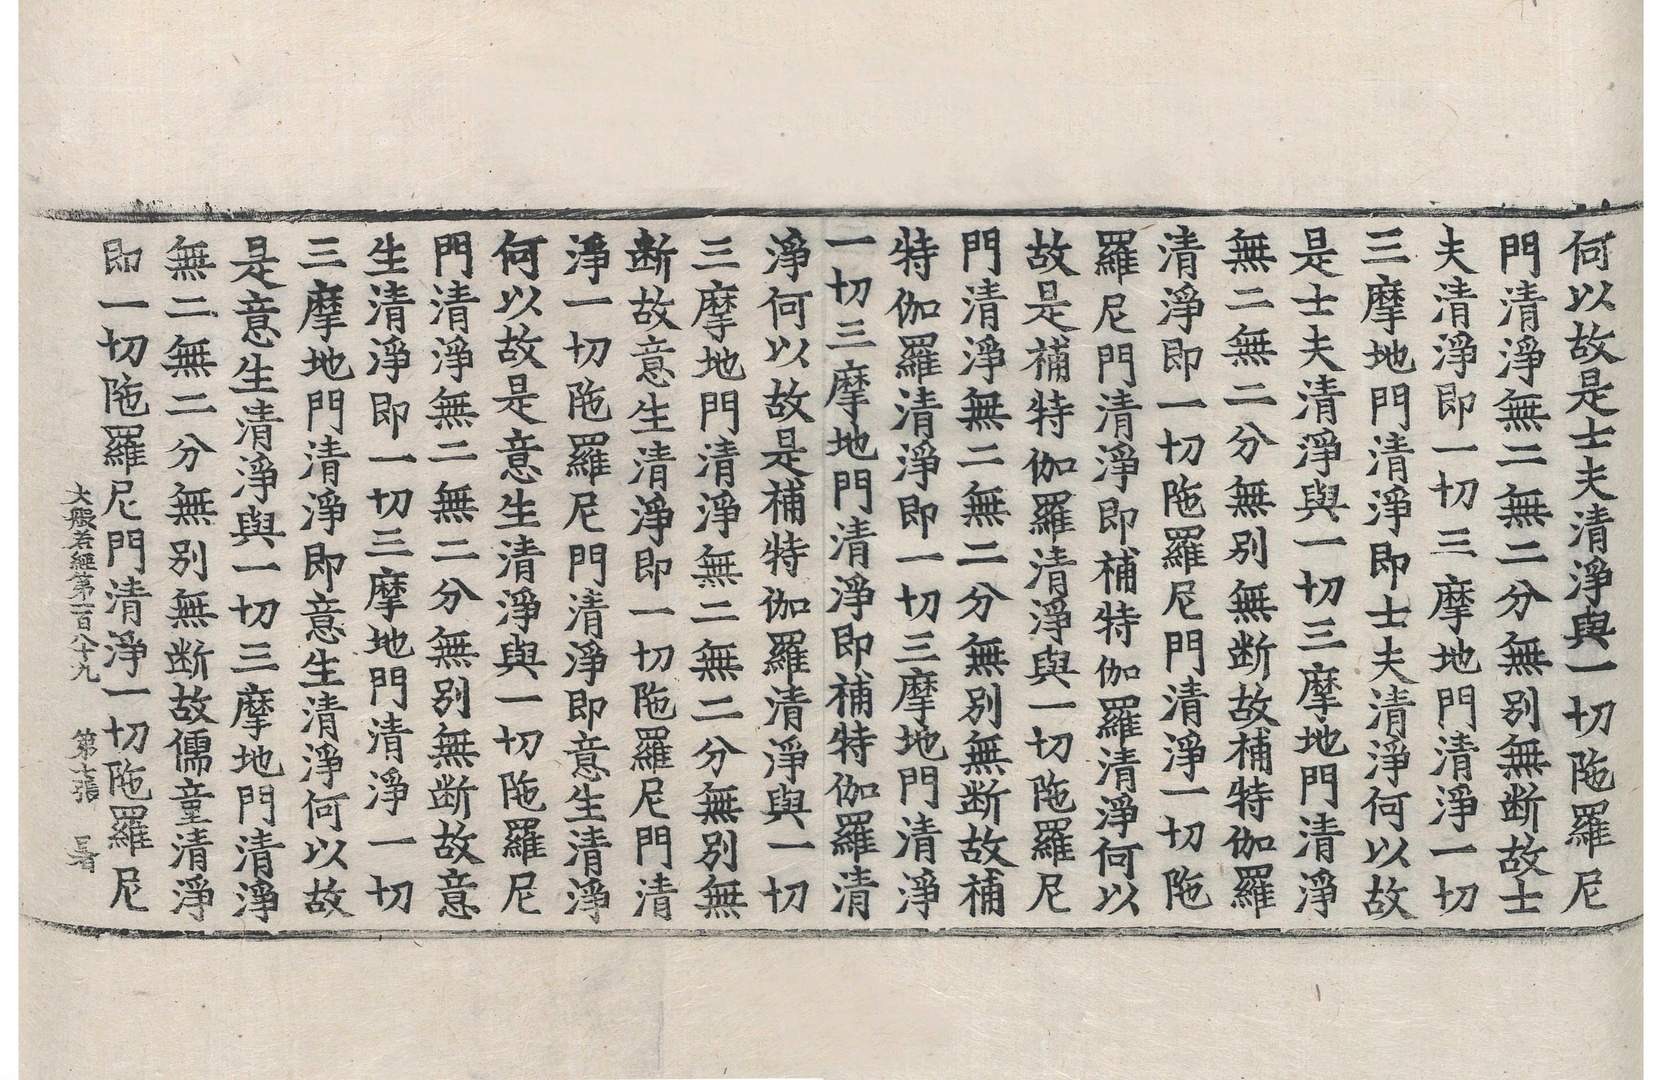 何以故是士夫清淨與一切陁羅尼
門清淨無二無二分無別無断故士
夫清淨即一切三摩地門清淨一切
三摩地門清淨即士夫清淨何以故
是士夫清淨與一切三摩地門清淨
無二無二分無別無断故補特伽羅
清淨即一切陁羅尼門清淨一切陁
羅尼門清淨即補特伽羅清淨何以
故是補特伽羅清淨與一切陁羅尼
門清淨無二無二分無別無断故補
特伽羅清淨即一切三摩地門清淨
一切三摩地門清淨即補特伽羅清
淨何以故是補特伽羅清淨與一切
三摩地門清淨無二無二分無別無
断故意生清淨即一切陁羅尼門清
淨一切陁羅尼門清淨即意生清淨
何以故是意生清淨與一切陁羅尼
門清淨無二無二分無別無断故意
生清淨即一切三摩地門清淨一切
三摩地門清淨即意生清淨何以故
是意生清淨與一切三摩地門清淨
無二無二分無別無断故儒童清淨
即一切陁羅尼門清淨一切陁羅尼
大般若經第一百八十九